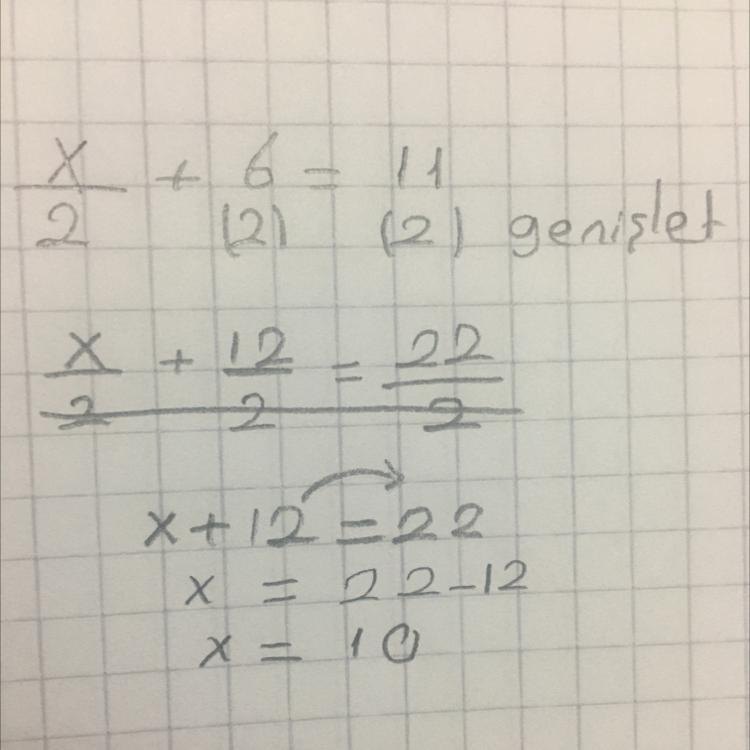 x/2 + 6 = 11
(2) (2) genişlet
x/2 + 12/2 = 22/2
x + 12 = 22
x = 22 - 12
x = 10